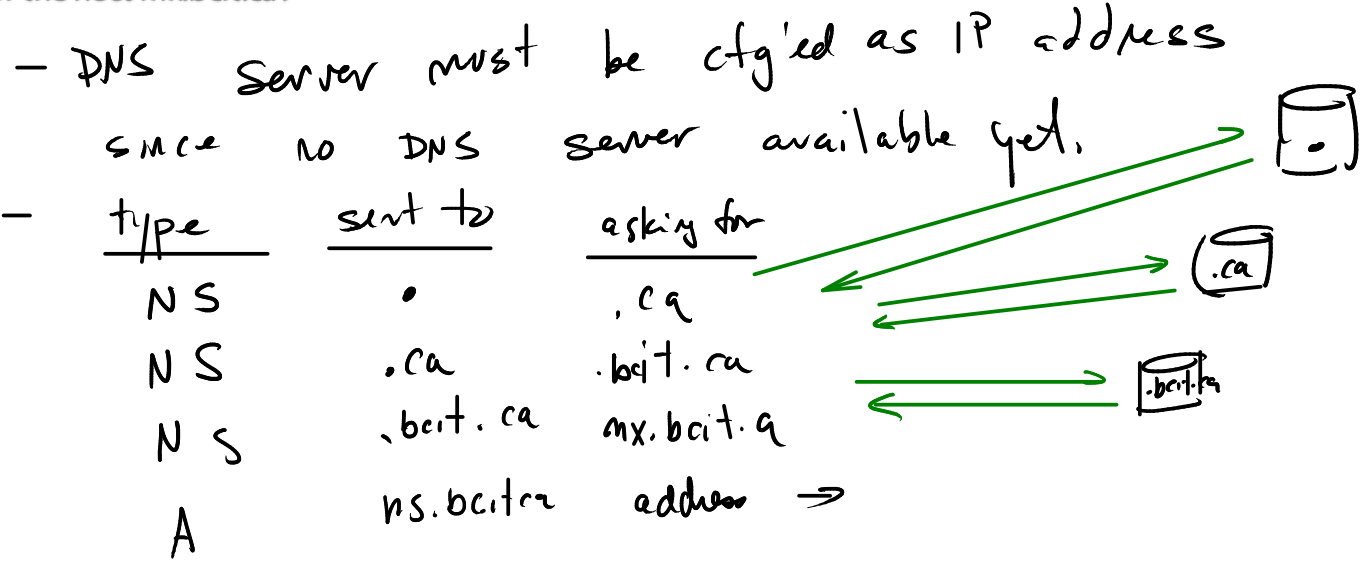 - DNS server must be cfg'ed as IP address
since no DNS server available yet.
.
- type sent to asking for
.ca
NS . .ca
NS .ca .bcit.ca
.bcit.ca
NS .bcit.ca mx.bcit.ca
A ns.bcit.ca address →